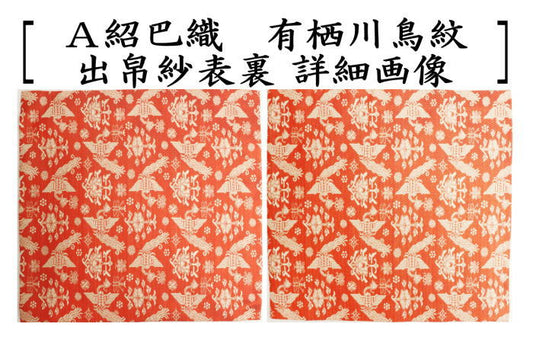 [ A紹巴織　有栖川鳥紋
出帛紗表裏 詳細画像 ]